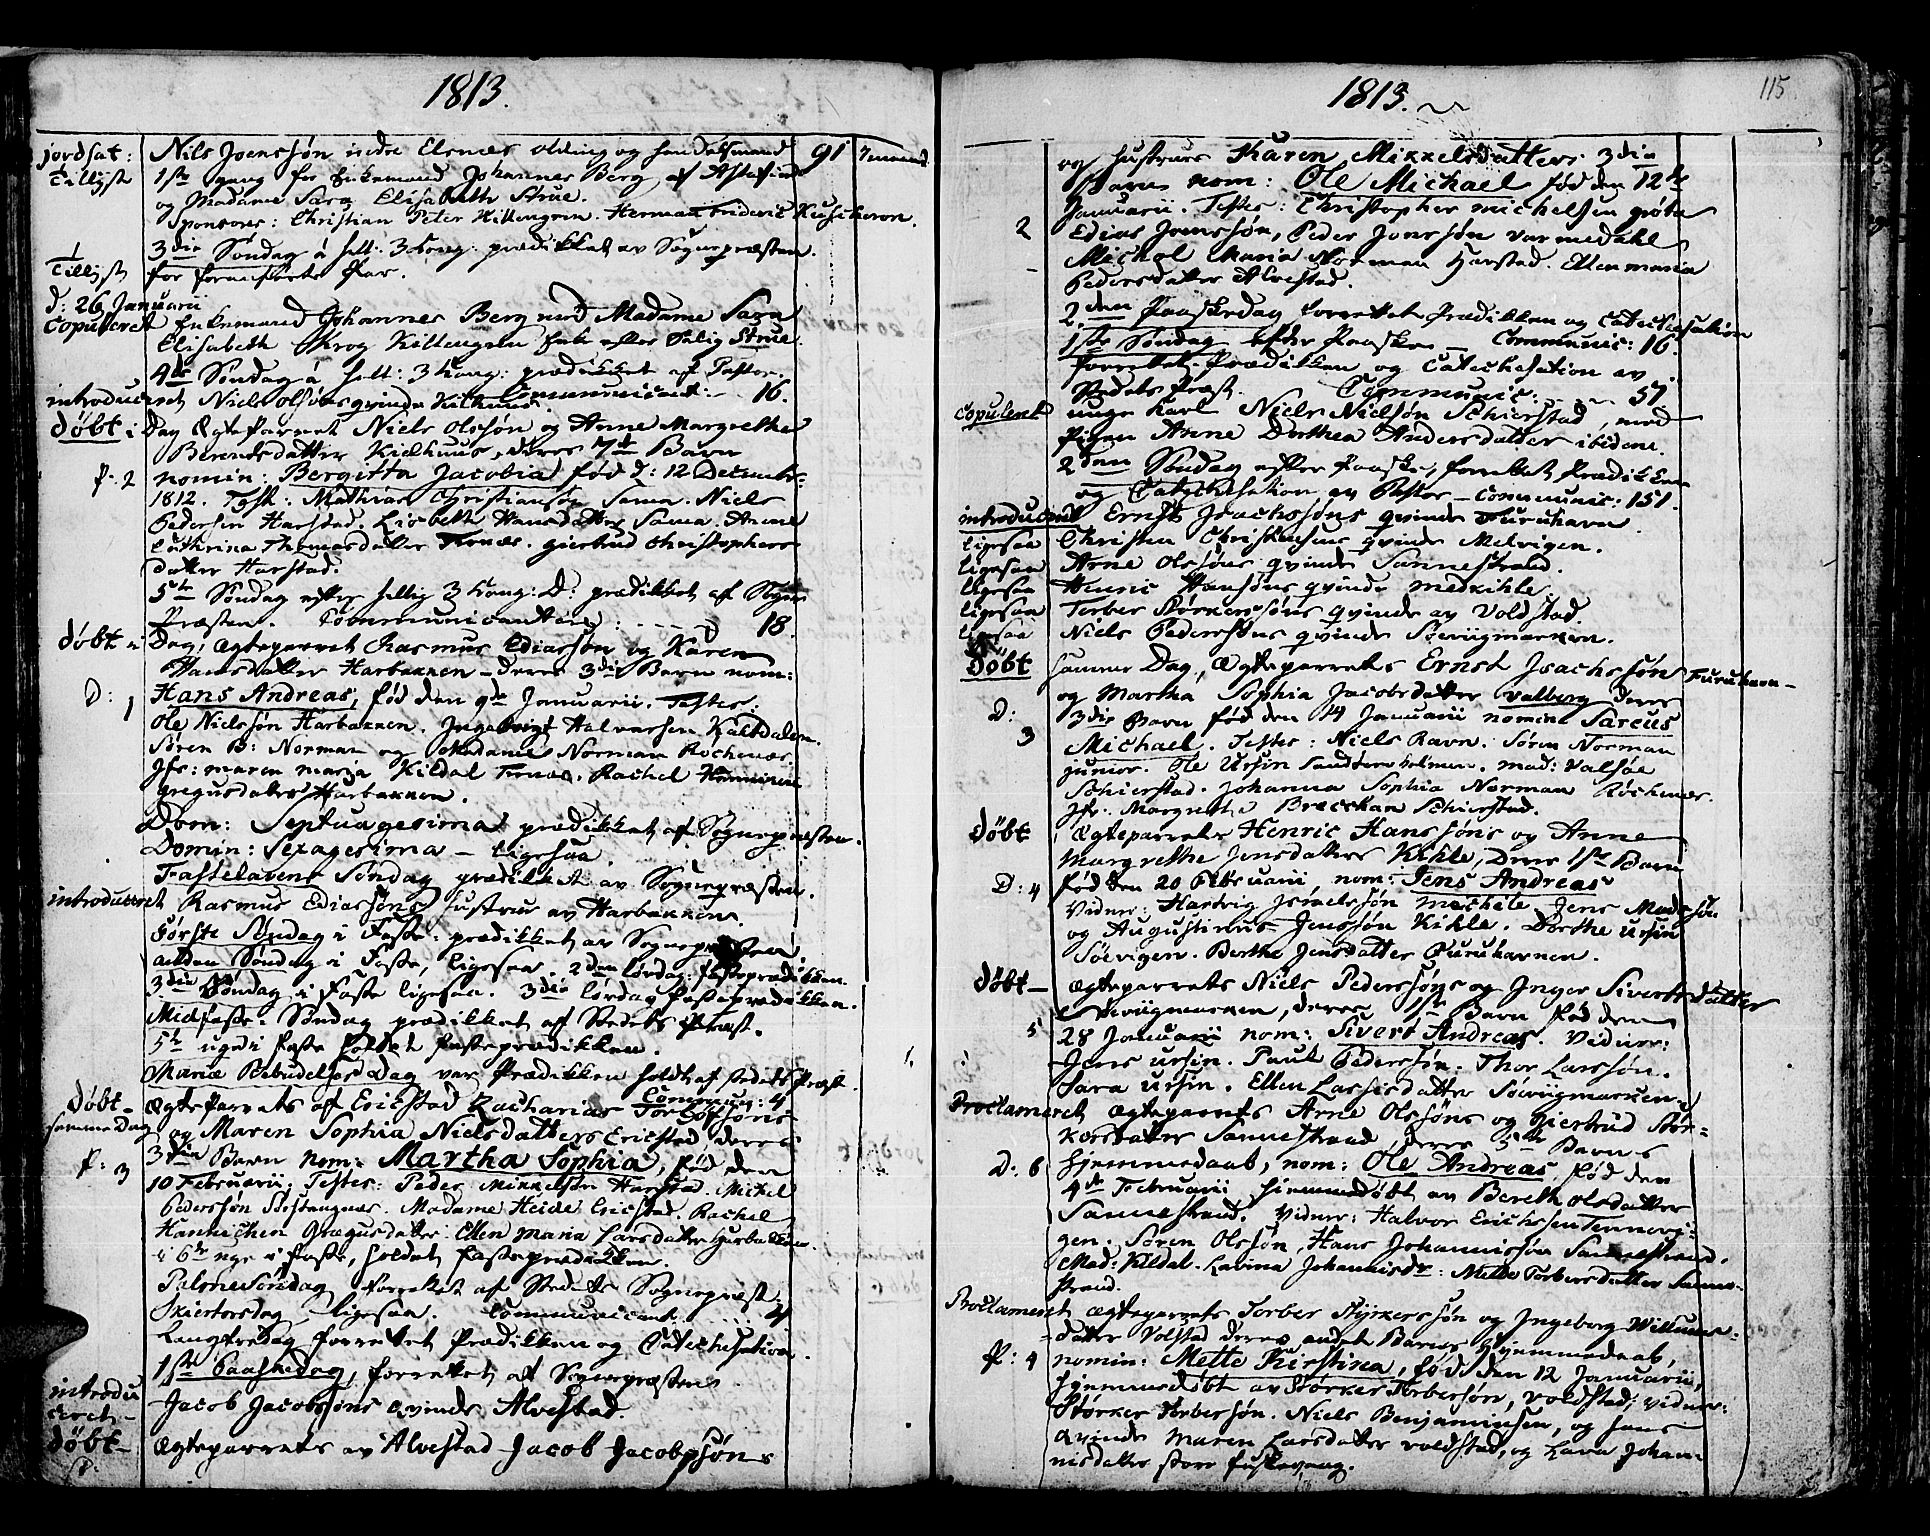 1813.
jordsat: Nils Joenssøn nedre Elsnes olding og handelsmand 91
Tillyst 1ste gang for Enkemand Johannes Berg af
og Madame Sara Elisabeth Strue.
Sponsores: Christian Peter Killengren. Herman Frideric
3die Søndag á hell: 3 Kong: prædikket av Sognepræsten.
Tillyst for fornefnte Par.
d: 26 Januarii
Copuleret Enkemand Johannes Berg med Madame Sara
Elisabeth Krog Killengren Enke efter Salig Strue.
4de Søndag á hell: 3 Kong: prædikket af Pastor.
introduceret Niels Olssøns qvinde Kilhuus. Communicant: 16.
døbt i Dag Ægteparret Niels Olssøn og Anne Margrethe
Berentsdatter Kielhuus, deres 7de Barn
P: 2 nomin: Bergitta Jacobia, fød d: 12 Decembr:
1812. Test: Mathias Christianssøn Sama. Niels
Pedersen Harstad. Lisbeth Hansdatter Sama. Anne
Cathrina Thomasdatter Ternes. giertrud Christophers
datter Harstad.
5te Søndag efter hellig 3 Kong: D: prædikket af Sogne
Præsten. Communicantere: 18.
døbt i Dag, Ægteparret Rasmus Ediassøn og Karen
Hansdatter Harbakken deres 3die Barn nom:
D: 1 Hans Andreas, fød den 9de Januarii. Testes:
Ole Nielssøn Harbakken. Ingebrigt Halvorsen Kaltdalen.
Søren B: Norman og Madame Norman Rochenes.
Jfr: maren maria Kildal Ternes. Rachel
gregusdatter Harbakken.
Dom: Septuagesima prædikket af Sognepræsten.
Domin: Sexagesima – Ligesaa.
Fastelavens Søndag prædikket av Sognepræsten.
introduceret Rasmus Ediassøns hustrue av Harbakken.
Første Søndag i Faste: prædikket av Sognepræsten.
anden Søndag i Faste, ligesaa. 2den lørdag: fasteprædikken.
3die Søndag i Faste ligesaa. 3die lørdag fasteprædikken.
Midfaste: Søndag prædikket af Stedets Præst.
5te uge i faste holdet fasteprædikken.
Mariæ Bebudelses Dag var Prædikken holdt af stedets Præst.
Commun: 4
døbt– Ægteparrets af Ericstad Zacharias
samme Dag og Maren Sophia Nielsdatters Ericstad deres
P: 3 3die Barn nom: Martha Sophia, fød den
10 Februarii: Testes: Peder Mikkelsen Harstad. Mickel
Pederssøn Madame Heide Ericstad. Rachel
Hannichen Gregusdatter. Ellen Maria Larsdatter Harbakken.
i 6te uge i Faste, holdet fasteprædikken.
Palme Søndag forrettet af Stedets Sognepræst.
Skiertorsdag ligesaa. Communicant .... 4
Langfredag forrettet Prædikken og Catechisation.
1ste Paaskedag, forrettet af Sognepræsten.
introdu
ceret– Jacob Jacobssøns qvinde Alvestad.
døbt– Ægteparrets av Alvestad Jacob Jacobssøns
1813.
115
og hustrues Karen Mikkelsdatters 3die
Barn nom: Ole Michael fød den 12te
Januarii. Testes: Christopher michelsen grøta
2 Edias Joenssøn, Peder Jonssøn varmedahl
Michel Maria Norman Harstad. Ellen maria
Pedersdatter Alvestad.
2den Paaskedag forrettet Prædikken og Catechisation
1ste Søndag efter Paaske – Communic: 16.
forrettet Prædikken og Catechisation av
Stedets Præst. Communic: 57.
Copuleret unge Karl Niels Nielssøn Schierstad, med
Pigen Anne Dorthea Andersdatter ibidem.
2den Søndag efter Paaske, forrettet Prædikken
og Catechisation av Pastor – Communic: 151.
introduceret Ernst Isachssøns qvinde Furuhavn.
ligesaa Christen Christensens qvinde Melvigen.
ligesaa Arne Olssøns qvinde Sannestrand.
ligesaa Henric Hanssøns qvinde medkihle.
ligesaa Torber Størkerssøns qvinde av Voldstad.
ligesaa Niels Pederssøns qvinde Søevigmarken.
Døbt samme Dag, Ægteparrets Ernst Isachssøn Furuhavn–
og Martha Sophia Jacobsdatter valberg deres
D: 3 3die Barn fød den 14 Januarii nomin Sareus
Michael. Testes: Niels Ravn. Søren Norman
junior. Ole Ursin Sandtorvholmen. mad: Valsøe
Schierstad. Johanna Sophia Norman Røchenes.
Jfr: Margrethe Schierstad.
døbt Ægteparrets Henric Hanssøns og Anne
Margrethe Jensdatters Kihle, deres 1ste Barn
D: 4 fød den 20 Februarii, nom: Jens Andreas
Vidner: Hartvig Israelssøn Jens Madssøn
og Augustinus Jenssøn Kihle. Dorthe Ursin
Søevigen. Berthe Jensdatter Furuhavnen.
døbt– Ægteparrets Niels Pederssøns og Inger Siverts datter
Søevigmarken, deres 1ste Barn fød den
5 28 Januarii nom: Sivert Andreas. Vidner:
Jens Ursin. Paul Pederssøn. Thor Larssøn.
Sara Ursin. Ellen Larsdatter Søevigmarken.
Proclameret Ægteparrets Arne Olssøns og Giertrud Stør-
kersdatter Sannestrand, deres 5te Barns
D: 6 hjemmedaab, nom: Ole Andreas fød den
4de Februarii hjemmedøbt av Bereth Olsdatter
Sannestrand. Vidner: Halvor Erichssen Tennevi-
gen. Søren Olssøn, Hans Johannissøn Sannestrand.
Mad: Kildal. Lavina Johannisdr: Mette Torbersdatter Sanne-
strand.
Proclameret Ægteparrets Torber Størkerssøn og Ingeborg Willums-
datter Volstad deres andet Barns Hjemmedaab,
P: 4 nomin: Mette Kirstina, fød den 12 Januarii,
hjemmedøbt av Størker Torberssøn, voldstad; vidner:
Størker Torberssøn. Niels Benjaminsen, og hans
qvinde Maren Larsdatter voldstad, og Lava Johan-
nisdatter store